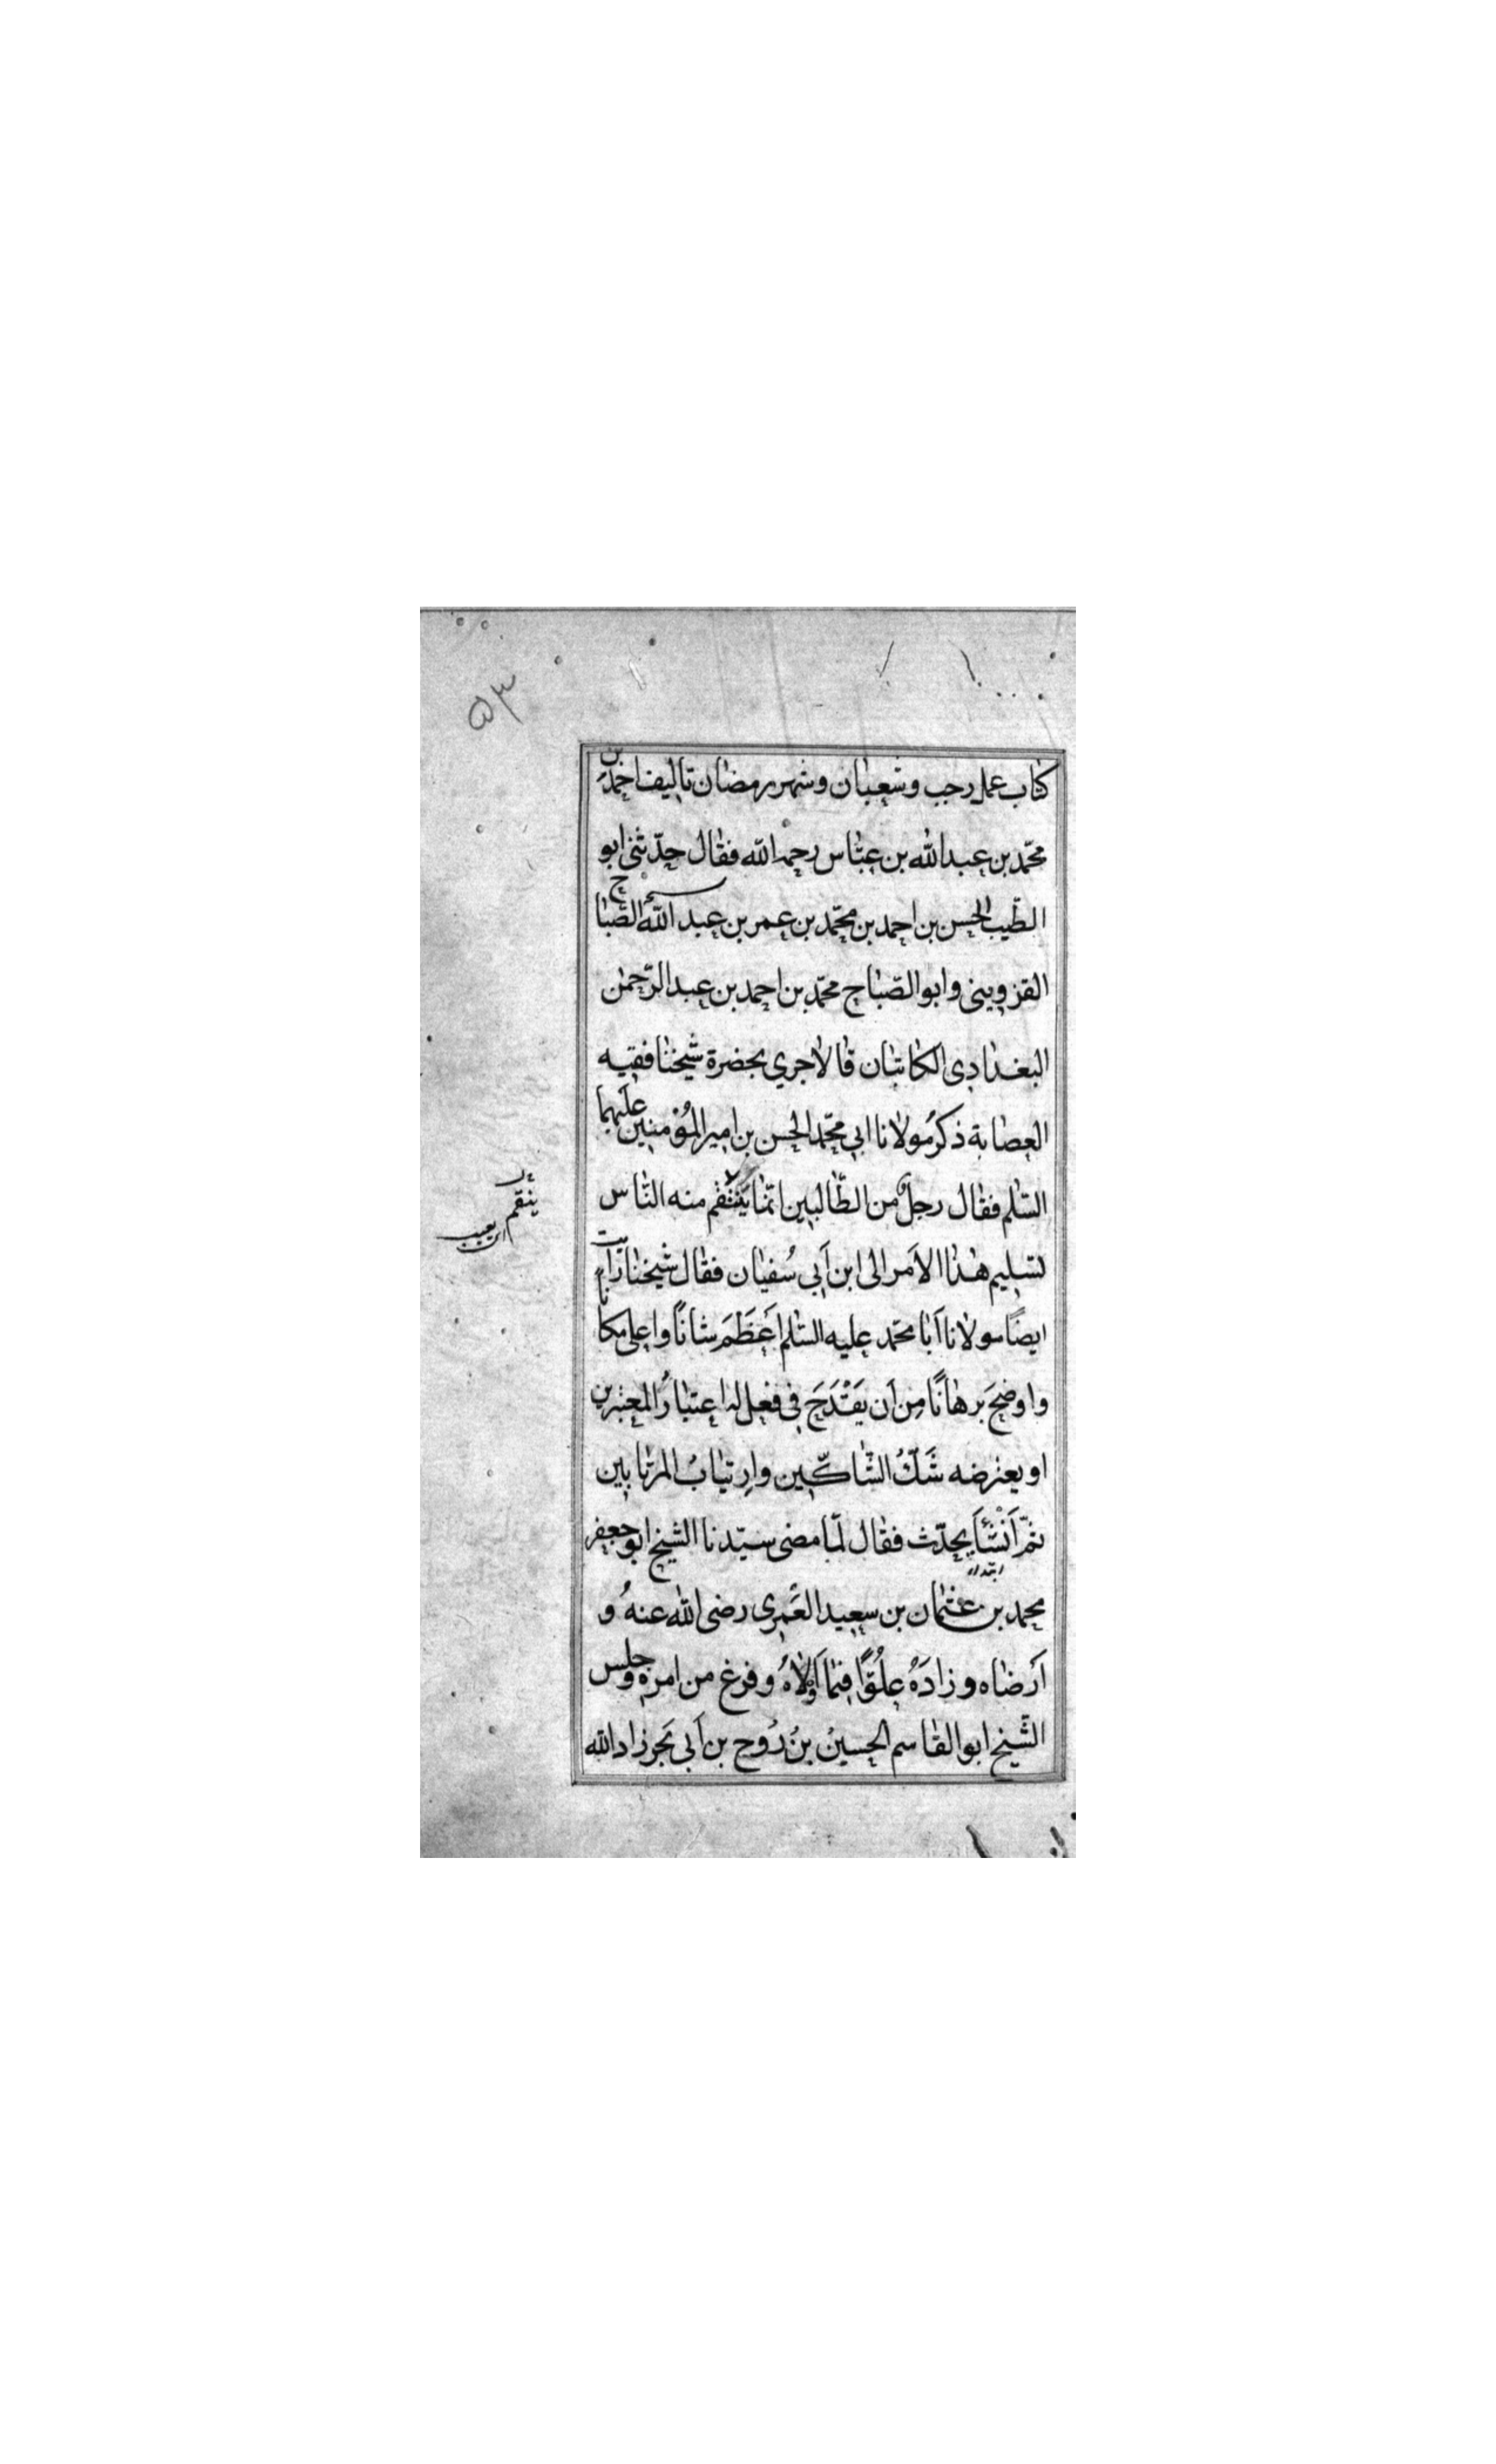 ۵۳
كتاب عمل رجب وشعبان وشهر رمضان تاليف احمد بن
محمّد بن عبد الله بن عبّاس رحمه الله فقال حدّثنى ابو
الطّيب الحسن بن احمد بن محمّد بن عمر بن عبد الله الصّباح
القزوينى وابو الصّباح محمّد بن احمد بن عبد الرّحمن
البغدادى الكاتبان قالا جري بحضرة شيخنا فقيه
العصابة ذكرُ مولانا ابي محمّد الحسن بن امير المؤمنين عليهما
السّلم فقال رجلٌ من الطّالبيين انّما يَنْتَقم منه النّاس
تسليم هذا الامر الى ابن اَبي سُفيان فقال شيخنا رَاَيت
ايضًا مولانا اَبا محمّد عليه السّلم اَعظَمَ شانًا واعلى مكانًا
واوضحَ برهانًا مِن اَن يَقْدَحَ فى فعل له اعتبارُ المعتبرين
او يعترضه شَكُّ الشّاكّين وارتيابُ المرتابين
ثمّ اَنْشَأَ يحدّث فقال لمّا مضى سيّدنا الشيخ ابو جعفر
ابتداء
محمد بن عثمان بن سعيد العَمرى رضى الله عنهُ و
اَرضاه وزادَهُ علُوًّا فيما اَوْلاهُ وفرغ من امره وجلس
الشّيخ ابو القاسم الحسينُ بنُ رُوح بن اَبى بَحر زاد الله
ينقم
اى يعيب